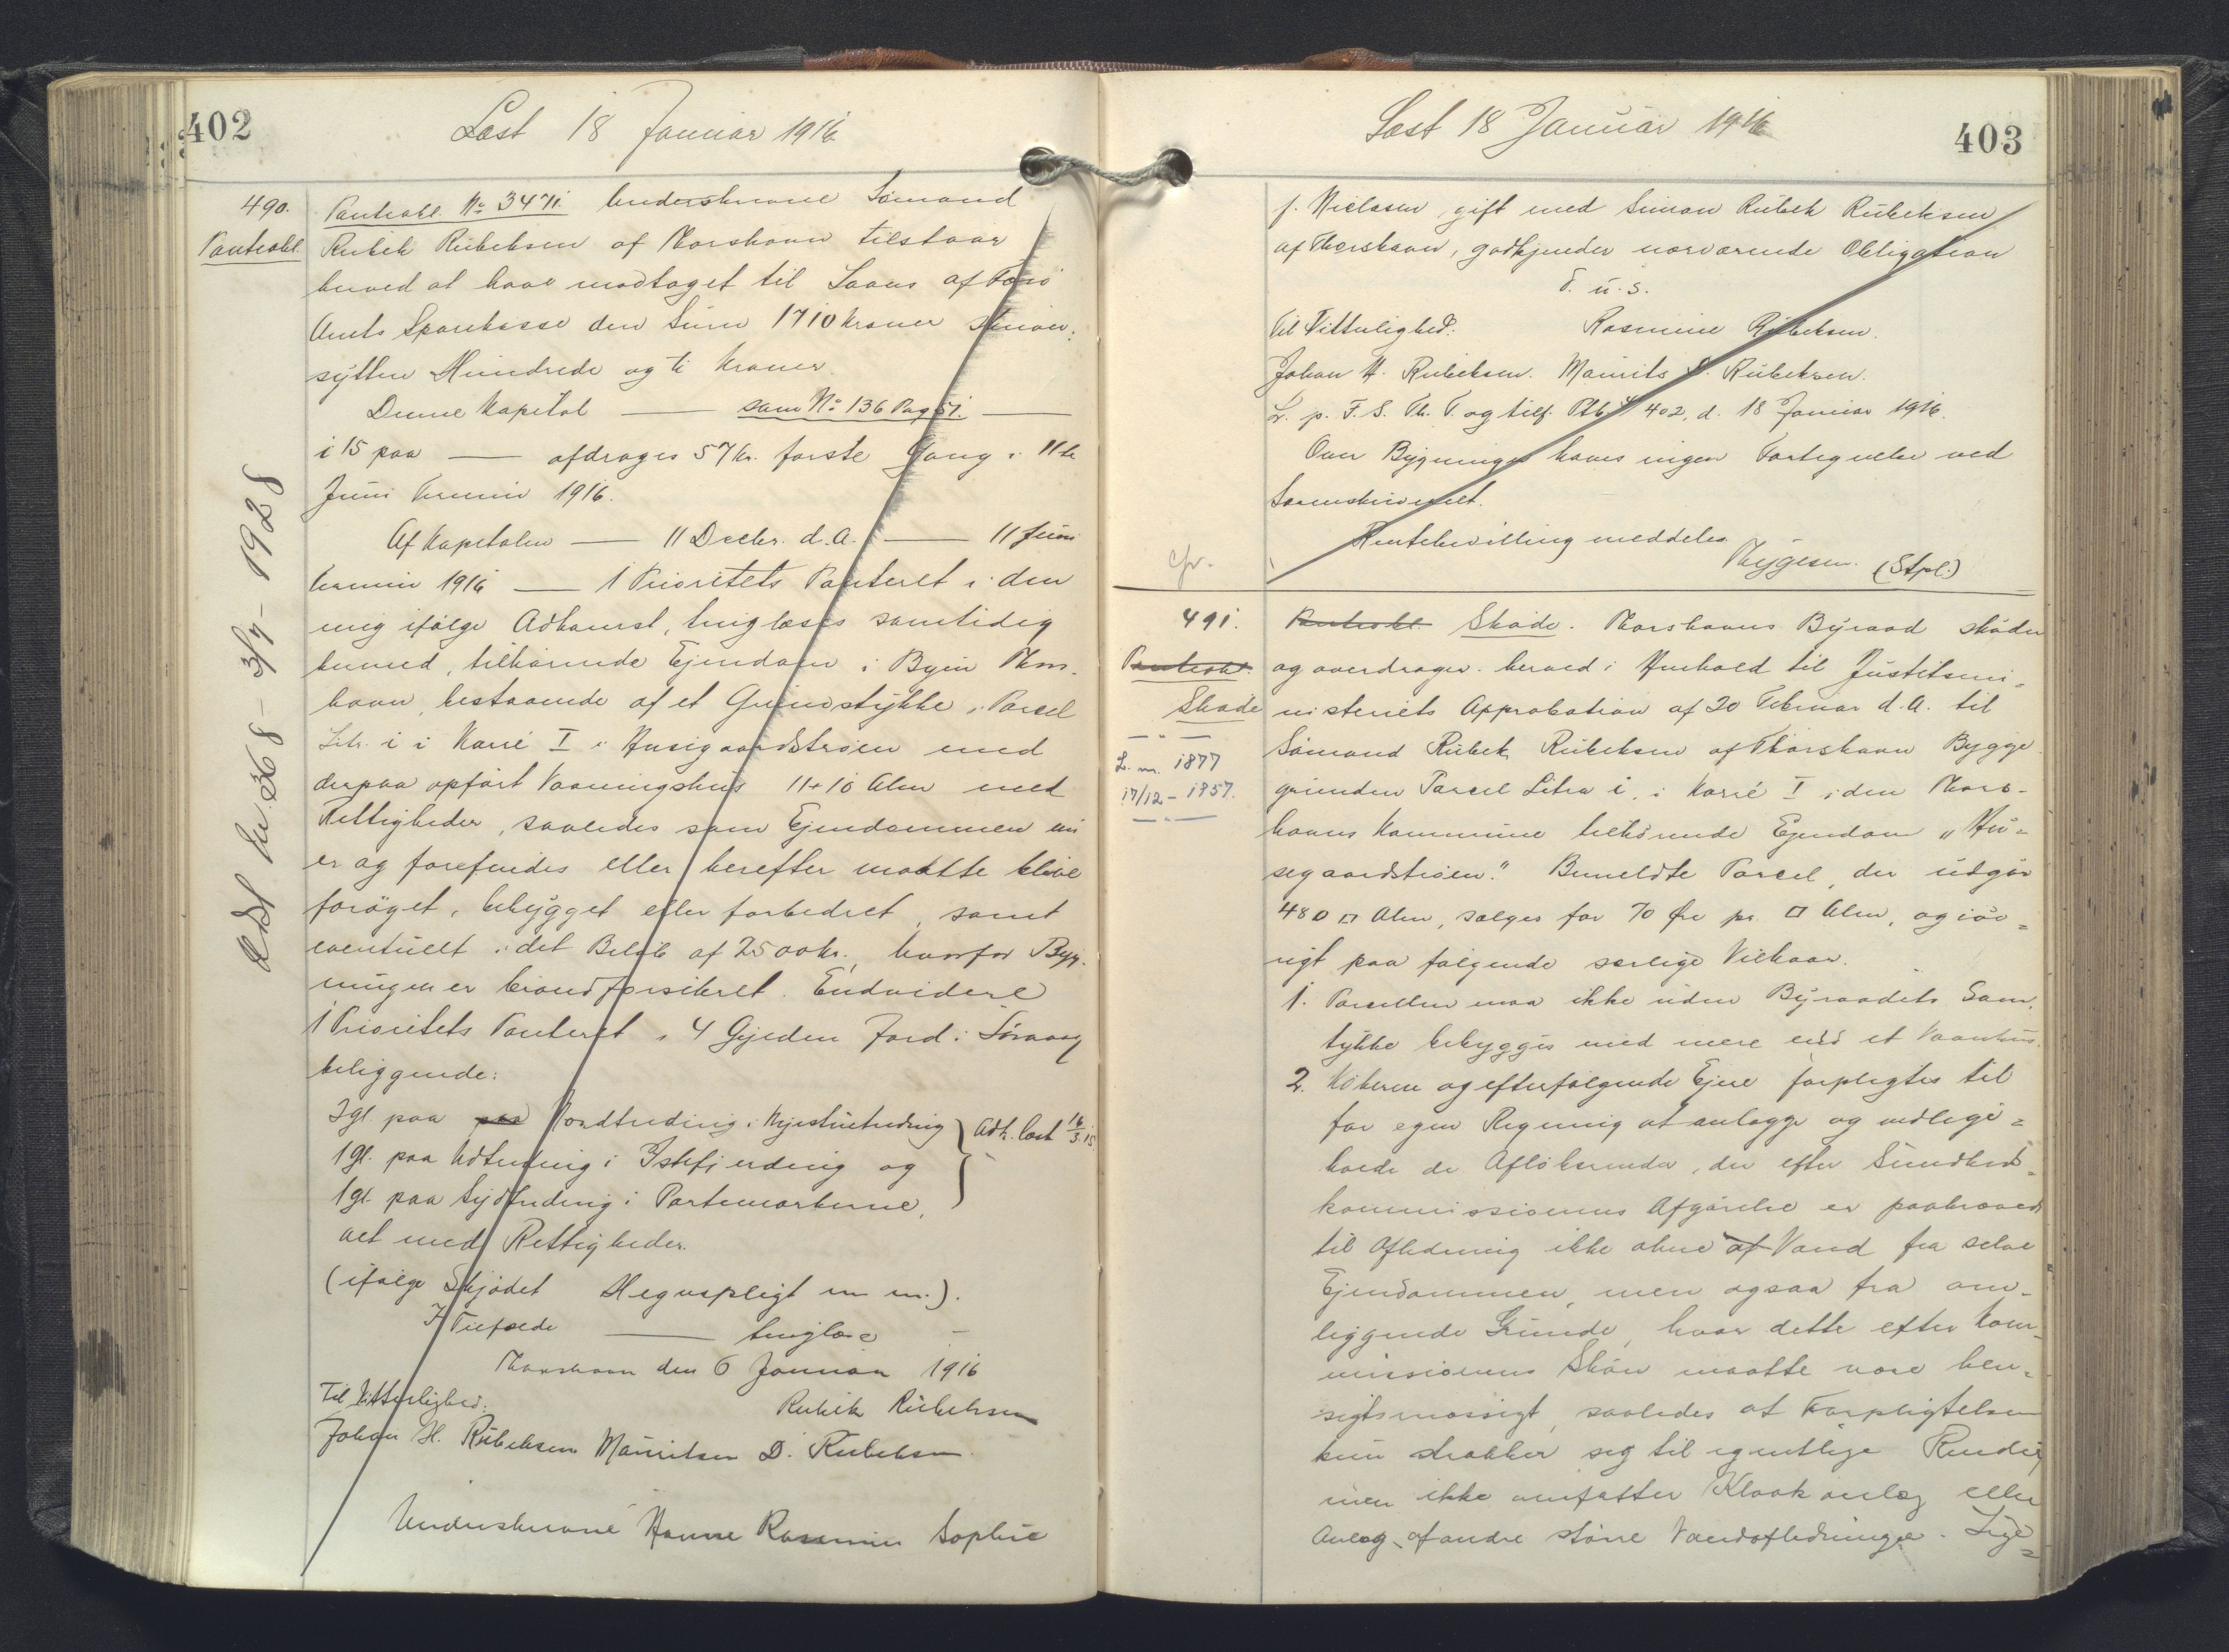 402
Læst 18 Januar 1916
490.
Panteobl.
Panteobl. No 3471. Underskrevne Sømand
Rubek Rubeksen af Thorshavn tilstaar
herved at have modtaget til Laans af Færø
Amts Sparekasse den Sum 1710 Kroner skriver:
sytten Hundrede og ti Kroner.
Denne Kapital — som No 136 Pag 51. —
i 15 paa — afdrages 57 Kr. første Gang i 11te
Juni Termin 1916.
Af Kapitalen — 11 Decbr. d.A. — 11 Juni
Termin 1916 — 1 Prioritets Panteret i den
mig ifølge Adkomst, tinglæses samtidig
hermed, tilhørende Ejendom i Byen Thors-
havn, bestaaende af et Grundstykke, Parcel
Litr. i i Karré I i Husegaardstrøen med
derpaa opført Vaaningshus 11+10 Alen med
Rettigheder, saaledes som Ejendommen nu
er og forefindes eller herefter maatte blive
forøget, bebygget eller forbedret, samt
eventuelt i det Beløb af 2500 Kr., hvorfor Byg-
ningen er brandforsikret. Endvidere
1 Prioritets Panteret i 4 Gylden Jord i Sørvaag
beliggende:
2 gl. paa paa Nordtreding i Myrstuetreding
1 gl. paa Udtreding i Istefjerding og
1 gl. paa Sydtreding i Partemarkerne,
Adk. læst 16/3 15.
alt med Rettigheder.
(ifølge Skjødet Hegnspligt m m.).
I Tilfælde — tinglæse —
Thorshavn den 6 Januar 1916
Til Vitterlighed: Rubek Rubeksen
Johan H. Rubeksen Mauritsen D. Rubeksen
Underskrevne Hanne Rasmine Sophie
Udsl. 3/7 - 1928
403
Læst 18 Januar 1916
f. Nielsen, gift med Simon Rubek Rubeksen
af Thorshavn, godkjender nærværende Obligation
D. u. s.
Til Vitterlighed: Rasmine Rubeksen.
Johan H. Rubeksen. Maurits D. Rubeksen.
Lr. p. F. S. Th. P. og tilf. Ptb. 402, d. 18 Januar 1916.
Over Bygningen haves ingen Fortegnelse ved
Sorenskriveriet.
Rentebevilling meddeles.
Thygesen. (Stpl.)
Cfr.
491.
Panteobl.
Skøde
L. m. 1877
17/12 - 1957.
Panteobl. Skøde. Thorshavns Byraad skøder
og overdrager herved i Henhold til Justitsmi-
nisteriets Approbation af 20 Februar d.A. til
Sømand Rubek Rubeksen af Thorshavn Bygge
grunden Parcel Litra i, i Karré I i den Thors-
havns Kommune tilhørende Ejendom "Hu-
segaardstrøen". Bemeldte Parcel, der udgør
480 □ Alen, sælges for 70 Øre pr. □ Alen, og iøv-
rigt paa følgende særlige Vilkaar.
1. Parcellen maa ikke uden Byraadets Sam-
tykke bebygges med mere end et Vaanhus.
2. Køberen og efterfølgende Ejere forpligtes til
for egen Regning at anlægge og vedlige-
holde de Afløbsrender, der efter Sundheds-
kommissionens Afgørelse er paakrævede
til Afledning ikke alene af Vand fra selve
Ejendommen, men ogsaa fra om-
liggende Grunde, hvor dette efter Kom-
missionens Skøn maatte være hen-
sigtsmæssigt, saaledes at Forpligtelsen
kun strækker sig til egentlige Render,
men ikke omfatter Kloakanlæg eller
Anlæg af andre større Vandafledninger. Lige-